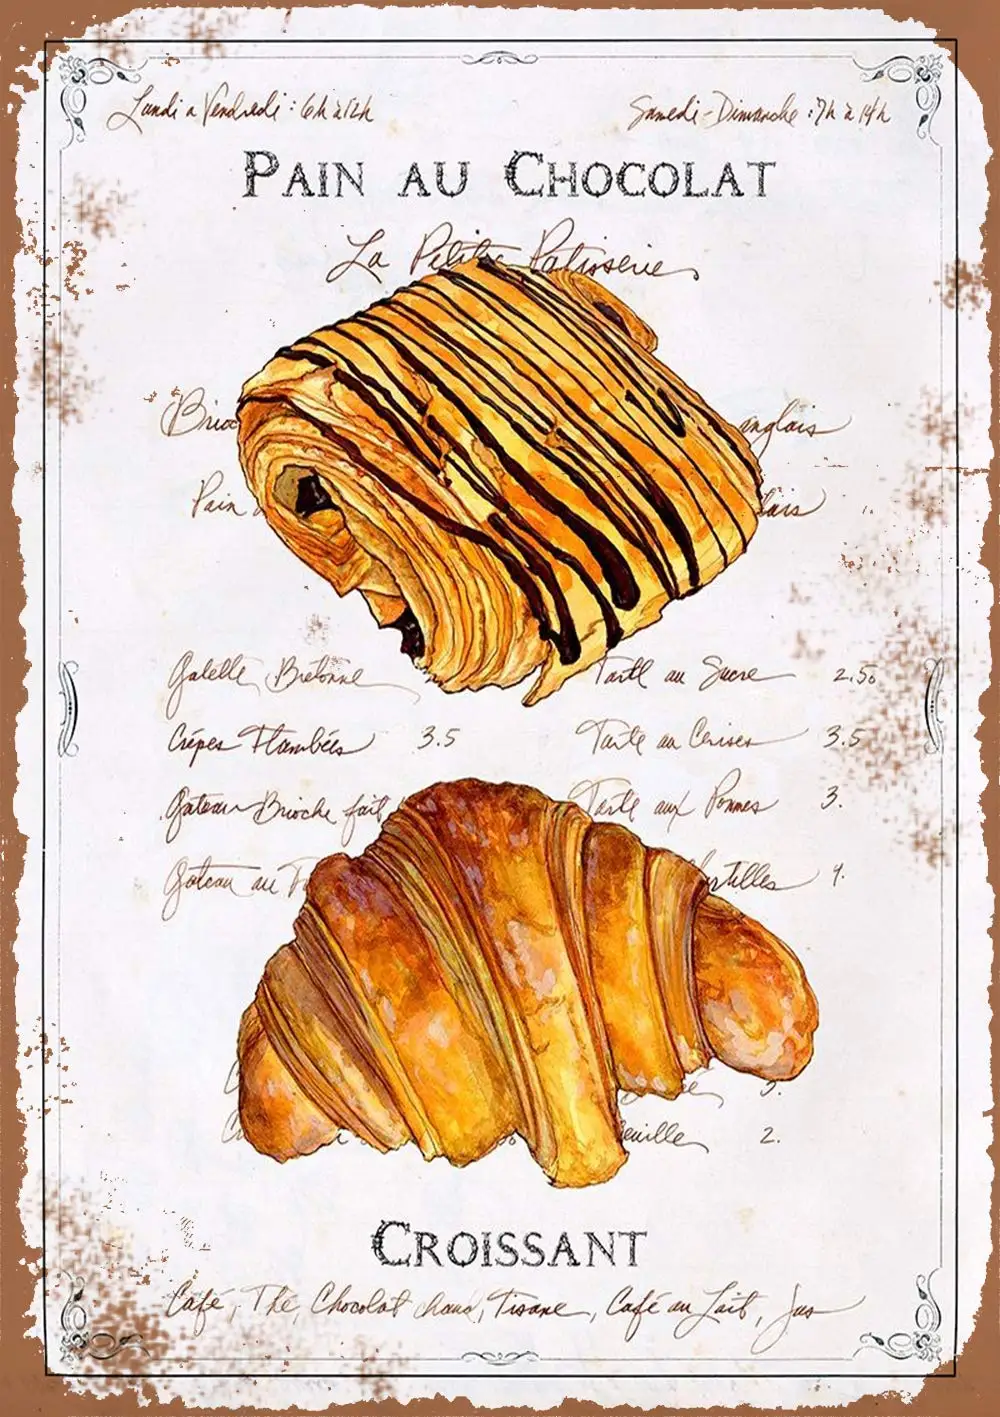 Lundi a Vendredi : 6h à 12h Samedi-Dimanche : 7h à 14h
PAIN AU CHOCOLAT
La Petite Patisserie
anglais
Pain
Galette Bretonne Tarte au Sucre 2.50
Crépes Flambées 3.5 Tarte au Cerises 3.5
Gateau Brioche fait Tarte aux Pommes 3.
Gateau au 4.
2.
CROISSANT
Café, Thé, Chocolat chaud, Tisane, Café au Lait, Jus